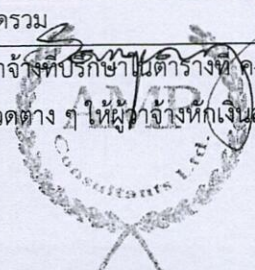 ดรวม
าจ้างที่ปรึกษาในตารางที่ ค
วดต่าง ๆ ให้ผู้ว่าจ้างหักเงิน
AMP
Consultants Ltd.